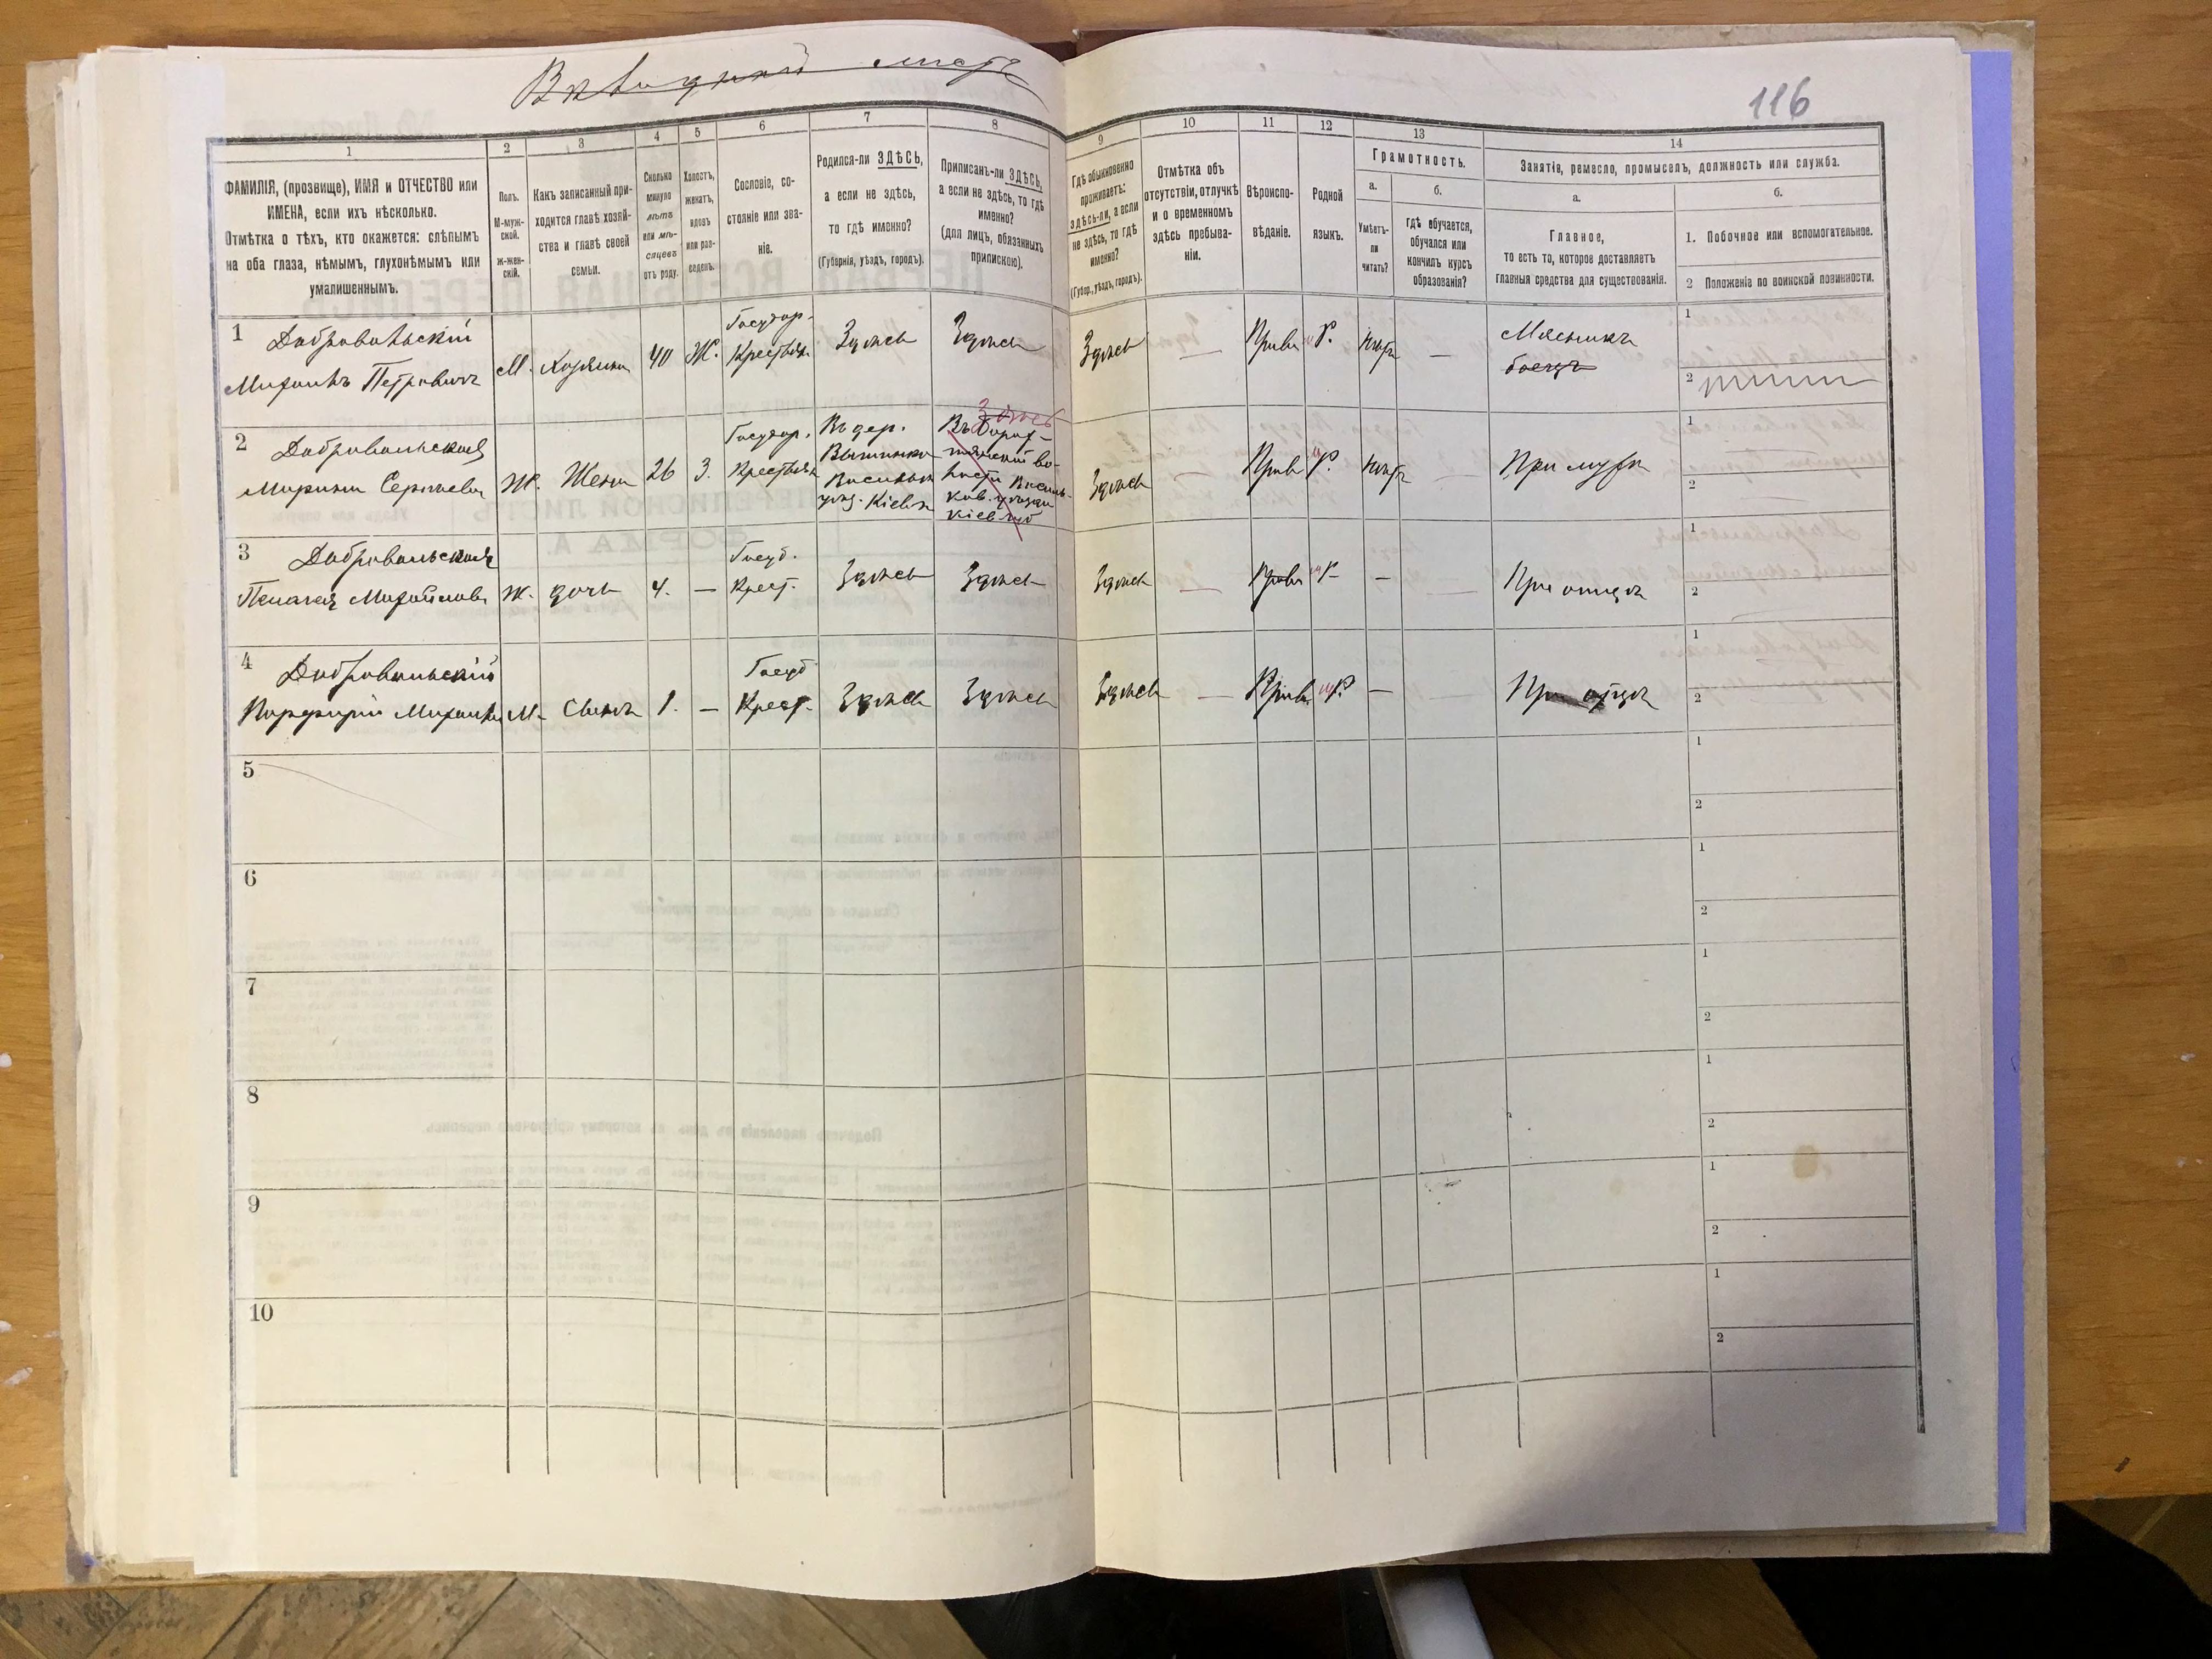 116
1
2
3
4
5
6
7
8
9
10
11
12
13
14
ФАМИЛІЯ, (прозвище), ИМЯ и ОТЧЕСТВО или
ИМЕНА, если ихъ нѣсколько.
Отмѣтка о тѣхъ, кто окажется: слѣпымъ
на оба глаза, нѣмымъ, глухонѣмымъ или
умалишеннымъ.
Полъ.
М-муж-
ской.
Ж-жен-
скій.
Какъ записанный при-
ходится главѣ хозяй-
ства и главѣ своей
семьи.
Сколько
минуло
лѣтъ
или мѣ-
сяцевъ
отъ роду.
Холостъ,
женатъ,
вдовъ
или раз-
веденъ.
Сословіе, со-
стояніе или зва-
ніе.
Родился-ли ЗДѢСЬ,
а если не здѣсь,
то гдѣ именно?
(Губернія, уѣздъ, городъ).
Приписанъ-ли ЗДѢСЬ,
а если не здѣсь, то гдѣ
именно?
(для лицъ, обязанныхъ
припискою).
Гдѣ обыкновенно
проживаетъ:
здѣсь-ли, а если
не здѣсь, то гдѣ
именно?
(Губер., уѣздъ, городъ).
Отмѣтка объ
отсутствіи, отлучкѣ
и о временномъ
здѣсь пребыва-
ніи.
Вѣроиспо-
вѣданіе.
Родной
языкъ.
Грамотность.
а.
Умѣетъ-
ли
читать?
б.
Гдѣ обучается,
обучался или
кончилъ курсъ
образованія?
Занятіе, ремесло, промыселъ, должность или служба.
а.
Главное,
то есть то, которое доставляетъ
главныя средства для существованія.
б.
1. Побочное или вспомогательное.
2 Положеніе по воинской повинности.
1
Добровольскій
Михаилъ Петровичъ
М.
Хозяинъ
40
Ж.
Государ.
Крестьян
Здѣсь
Здѣсь
Здѣсь
—
Прав
Р.
нѣтъ
—
Мясникъ
1
2
2
Добровольская
Марина Сергѣева
Ж.
Жена
26
З.
Государ.
Крестьян
Въ дер.
Васильк
уѣзд. Кіевск
Здѣсь
Здѣсь
Прав
Р.
нѣтъ
При мужѣ
1
2
3
Добровольская
Пелагея Михайлова
Ж.
дочь
4.
—
Госуд.
Крест.
Здѣсь
Здѣсь
Здѣсь
—
Прав
Р
—
—
При отцѣ
1
2
4
Добровольскій
Порфирій Михаил
М
Сынъ
1.
—
Госуд
Крест.
Здѣсь
Здѣсь
Здѣсь
—
Прав
Р
—
—
При отцѣ
1
2
5
1
2
6
1
2
7
1
2
8
1
2
9
1
2
10
1
2